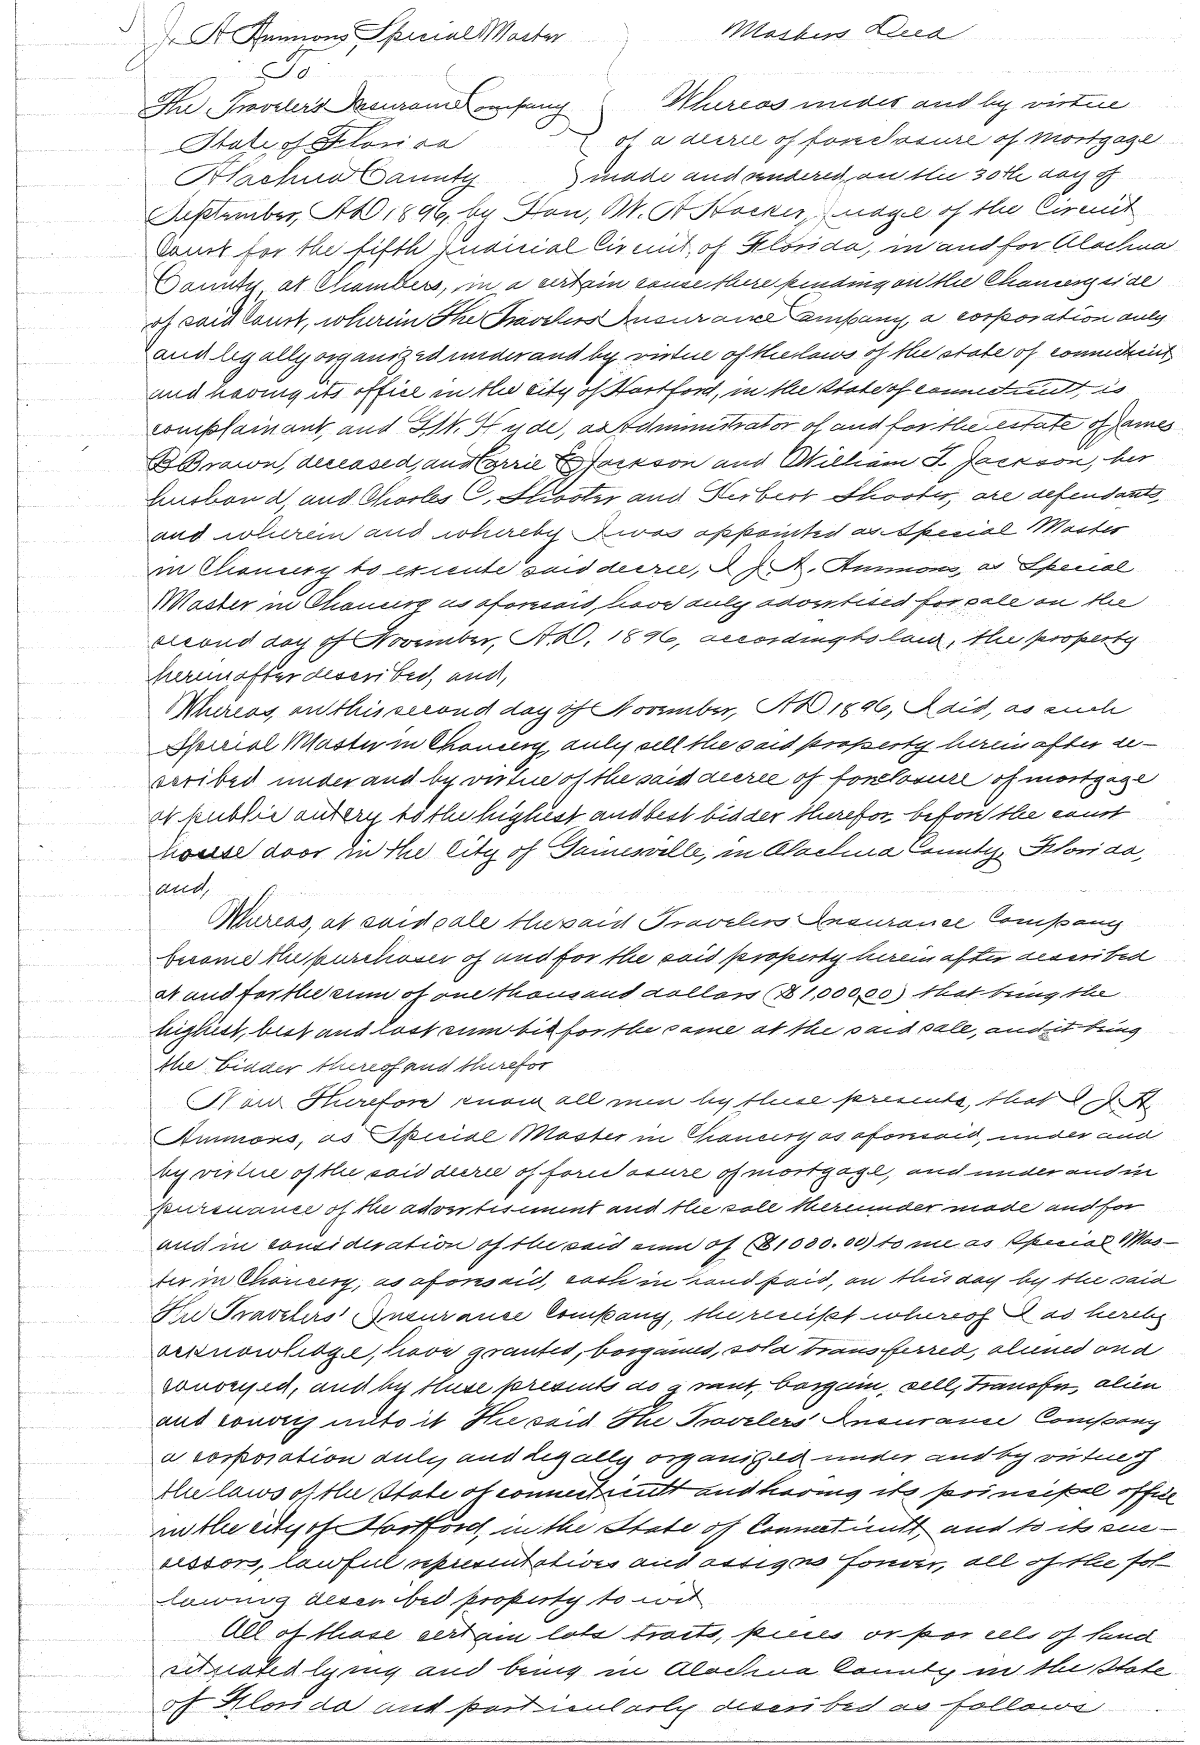 J. A Ammons, Special Master Masters Deed
To
The Traveler's Insurance Company Whereas under and by virtue
State of Florida of a decree of foreclosure of mortgage
Alachua County made and rendered, on the 30th day of
September, AD 1896, by Hon, W. A Hocker, Judge of the Circuit
Court for the fifth Judicial Circuit, of Florida, in and for Alachua
County, at Chambers, in a certain cause there pending on the Chancery side
of said Court, wherein The Travelers Insurance Company, a corporation duly
and legally organized under and by virtue of the laws of the state of connecticut
and having its office in the city of Hartford, in the State of connecticutt, is
complainant, and G.W. Hyde, as Administrator of and for the estate of James
B Brown, deceased, and Carrie E Jackson and William T. Jackson, her
husband, and Charles C. Shooter and Herbert Shooter, are defendants,
and wherein and whereby I was appointed as Special Master
in Chancery to execute said decree, I J. A. Ammons, as Special
Master in Chancery as aforesaid, have duly advertised for sale on the
second day of November, AD. 1896, according to law, the property
hereinafter described, and,
Whereas, on this second day of November, AD 1896, I did, as such
Special Master in Chancery, duly sell the said property herein after de-
scribed under and by virtue of the said decree of foreclosure of mortgage
at public outcry to the highest and best bidder therefor, before the court
house door in the City of Gainesville, in Alachua County, Florida,
and,
Whereas, at said sale the said Travelers Insurance Company
became the purchaser of and for the said property herein after described
at and for the sum of one thousand dollars ($1,000,00) that being the
highest, best and last sum bid for the same at the said sale, and it being
the bidder thereof and therefor
Now Therefore know all men by these presents, that I J A
Ammons, as Special Master in Chancery as aforesaid, under and
by virtue of the said decree of foreclosure of mortgage, and under and in
pursuance of the advertisement and the sale thereunder made and for
and in consideration of the said sum of ($1000.00) to me as Special Mas-
ter in Chancery, as aforesaid, cash in hand paid, on this day by the said
The Travelers' Insurance Company, the receipt whereof I do hereby
acknowledge, have granted, bargained, sold transferred, aliened and
conveyed, and by these presents do grant, bargain, sell, transfer, alien
and convey unto it The said The Travelers' Insurance Company
a corporation duly, and legally organized under and by virtue of
the laws of the State of connecticutt and having its principal office
in the city of Hartford, in the State of Connecticutt, and to its suc-
cessors, lawful representatives and assigns forever, all of the fol-
lowing described property to wit
All of those certain lots tracts, pieces or parcels of land
situated lying and being in Alachua County in the State
of Florida and particularly described as follows